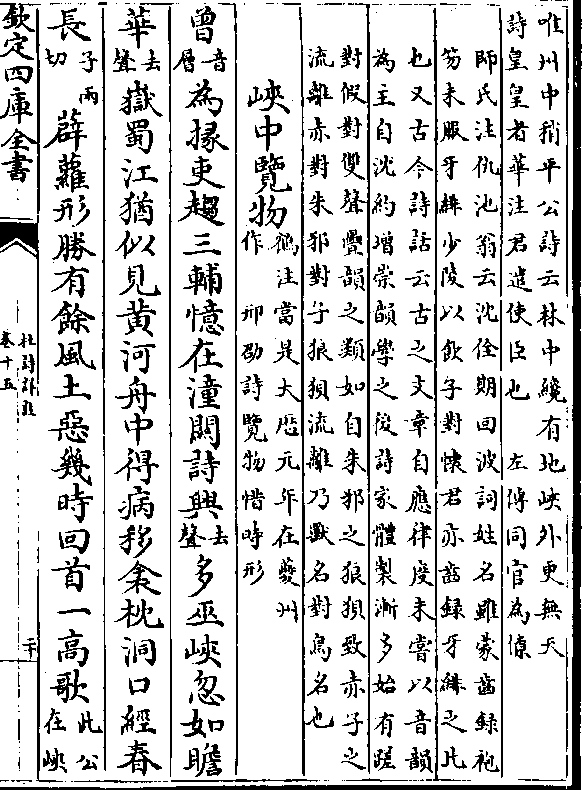 唯州中稍平公詩云林中纔有地峽外更無天
詩皇皇者華注君遣使臣也　左傳同官為僚
師氏注仇池翁云沈佺期回波詞姓名雖蒙齒録袍
笏未服牙緋少陵以飲子對懷君亦齒録牙緋之比
也又古今詩話云古之文章自應律度未嘗以音韻
為主自沈約增崇韻學之後詩家體製漸多始有蹉
對假對雙聲疊韻之類如自朱邪之狼狽致赤子之
流離赤對朱邪對子狼狽流離乃獸名對鳥名也
峽中覽物
鶴注當是大厯元年在夔州
作　邢劭詩覽物惜時形
曾音層為掾吏趨三輔憶在潼關詩興去聲多巫峽忽如瞻
華去聲嶽蜀江猶似見黄河舟中得病移衾枕洞口經春
長子兩切薜蘿形勝有餘風土惡幾時回首一高歌此公在峽
欽定四庫全書
杜詩詳註
卷十五
二十